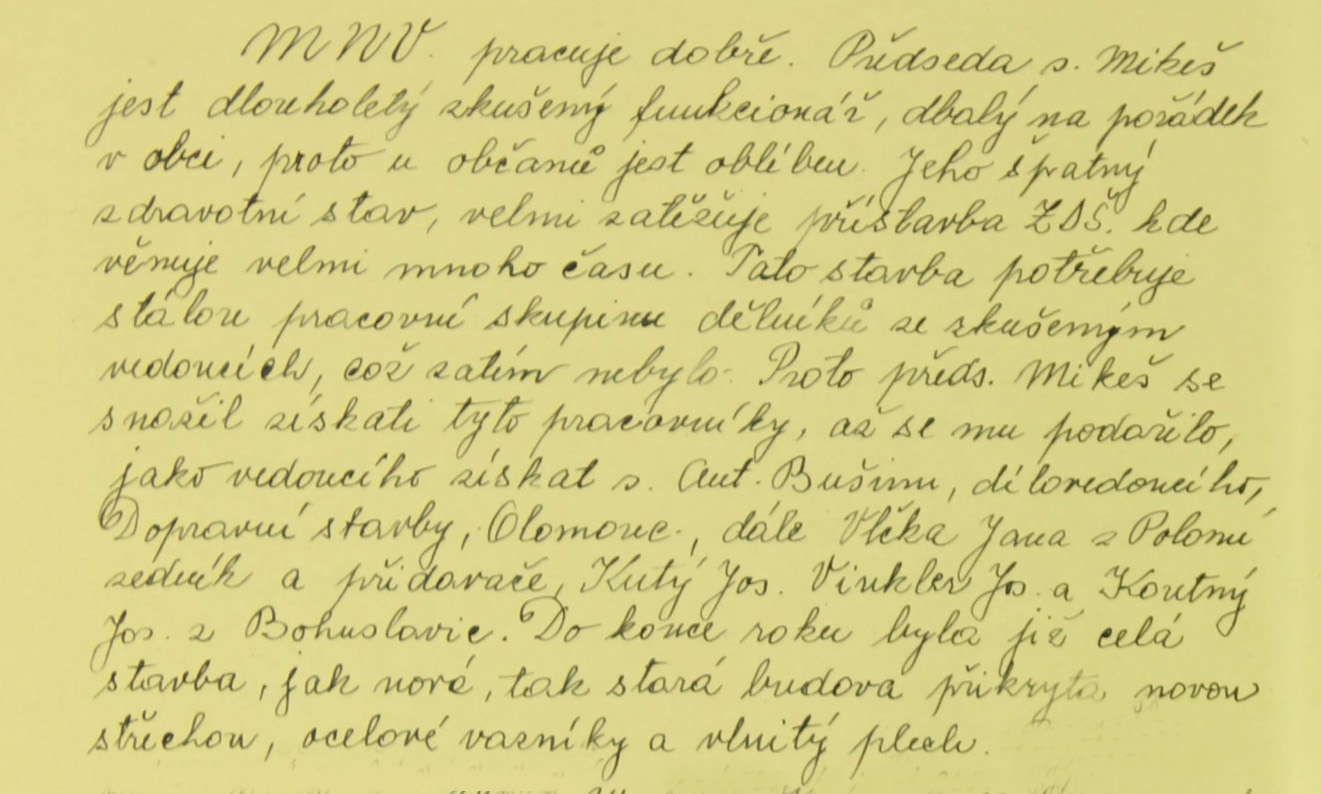 MNV. pracuje dobře. Předseda s. Mikeš
jest dlouholetý zkušený funkcionář, dbalý na pořádek
v obci, proto u občanů jest oblíben. Jeho špatný
zdravotní stav, velmi zatěžuje přístavba ZDŠ. kde
věnuje velmi mnoho času. Tato stavba potřebuje
stálou pracovní skupinu dělníků se zkušeným
vedoucích, což zatím nebylo. Proto předs. Mikeš se
snažil získati tyto pracovníky, až se mu podařilo,
jako vedoucího získat s. Ant. Bušinu, dílovedoucího,
Dopravní stavby, Olomouc., dále Vlčka Jana z Polomí
zedník a přidavače, Kutý Jos. Vinkler Js. a Koutný
Jos. z Bohuslavic. Do konce roku byla již celá
stavba, jak nové, tak stará budova přikryta novou
střechou, ocelové vazníky a vlnitý plech.